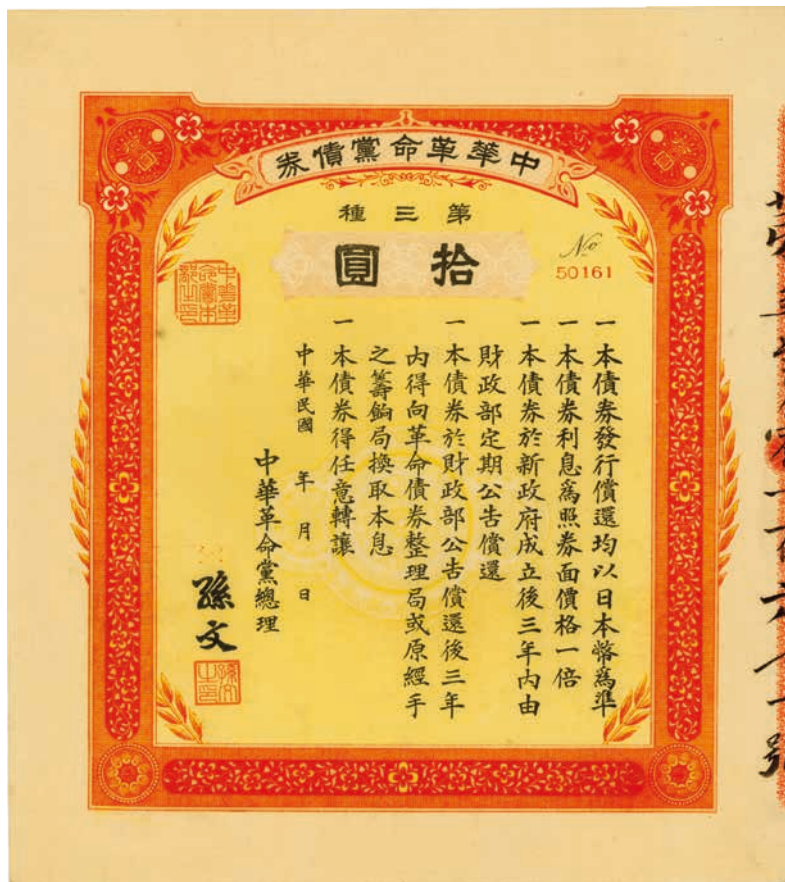 中華革命黨債券
第三種
拾圓
No
50161
一本債券發行償還均以日本幣爲準
一本債券利息爲照券面價格一倍
一本債券於新政府成立後三年內由
財政部定期公告償還
一本債券於財政部公告償還後三年
內得向革命債券整理局或原經手
之籌餉局換取本息
一本債券得任意轉讓
中華民國 年 月 日
中華革命黨總理
孫文
孫文之印
中華革命黨本部之印